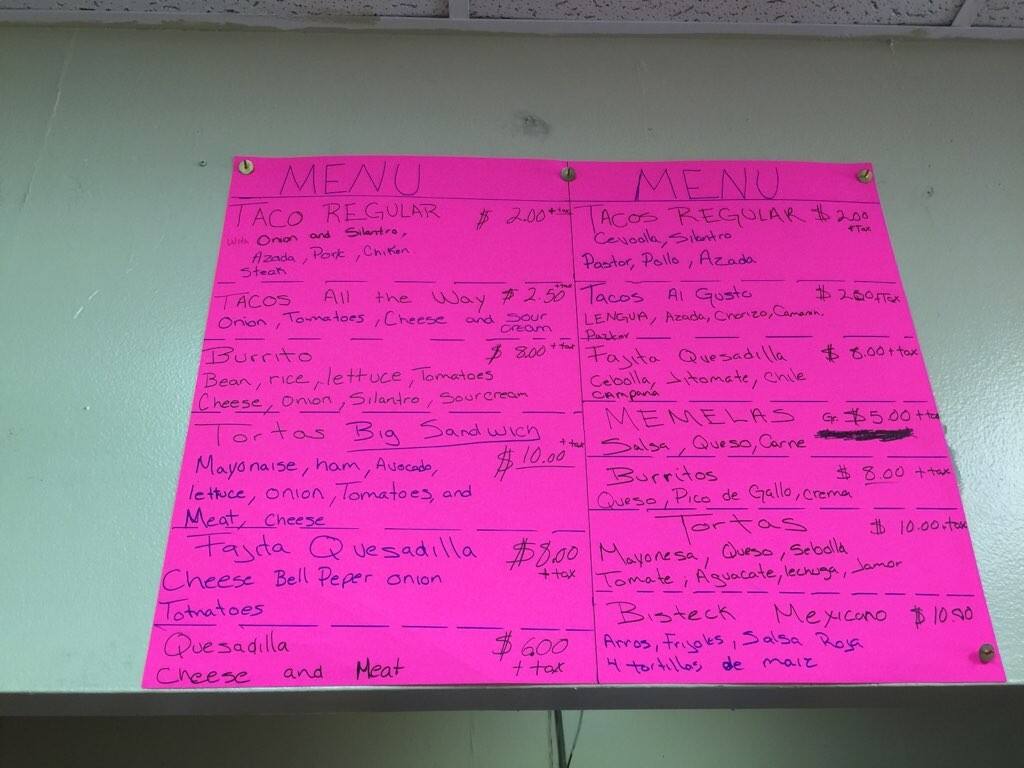 MENU
TACO REGULAR $ 2.00 + tax
With Onion and Silantro,
Azada, Pork, Chiken
Steak
TACOS All the Way $ 2.50 + tax
Onion, Tomatoes, Cheese and sour
cream
Burrito $ 8.00 + tax
Bean, rice, lettuce, Tomatoes
Cheese, Onion, Silantro, Sourcream
Tortas Big Sandwich
$ 10.00 + tax
Mayonaise, ham, Avocado,
lettuce, onion, Tomatoes, and
Meat, cheese
Fajita Quesadilla $8.00
+ tax
Cheese Bell Peper onion
Tomatoes
Quesadilla $ 6.00
+ tax
Cheese and Meat
MENU
TACOS REGULAR $ 2.00
+ Tax
Cevoolla, Silantro
Pastor, Pollo, Azada
Tacos Al Gusto $ 2.50 + Tax
LENGUA, Azada, Chorizo, Camaron.
Fajita Quesadilla $ 8.00 + tax
Cebolla, Jitomate, Chile
CAMPANA
MEMELAS Gr. $5.00 + tax
Salsa, Queso, Carne
Burritos $ 8.00 + tax
Queso, Pico de Gallo, crema
Tortas $ 10.00 + tax
Mayonesa, Queso, Sebolla
Tomate, Aguacate, lechuga, Jamon
Bisteck Mexicano $ 10.50
Arros, Frijoles, Salsa Roja
4 tortillas de maiz